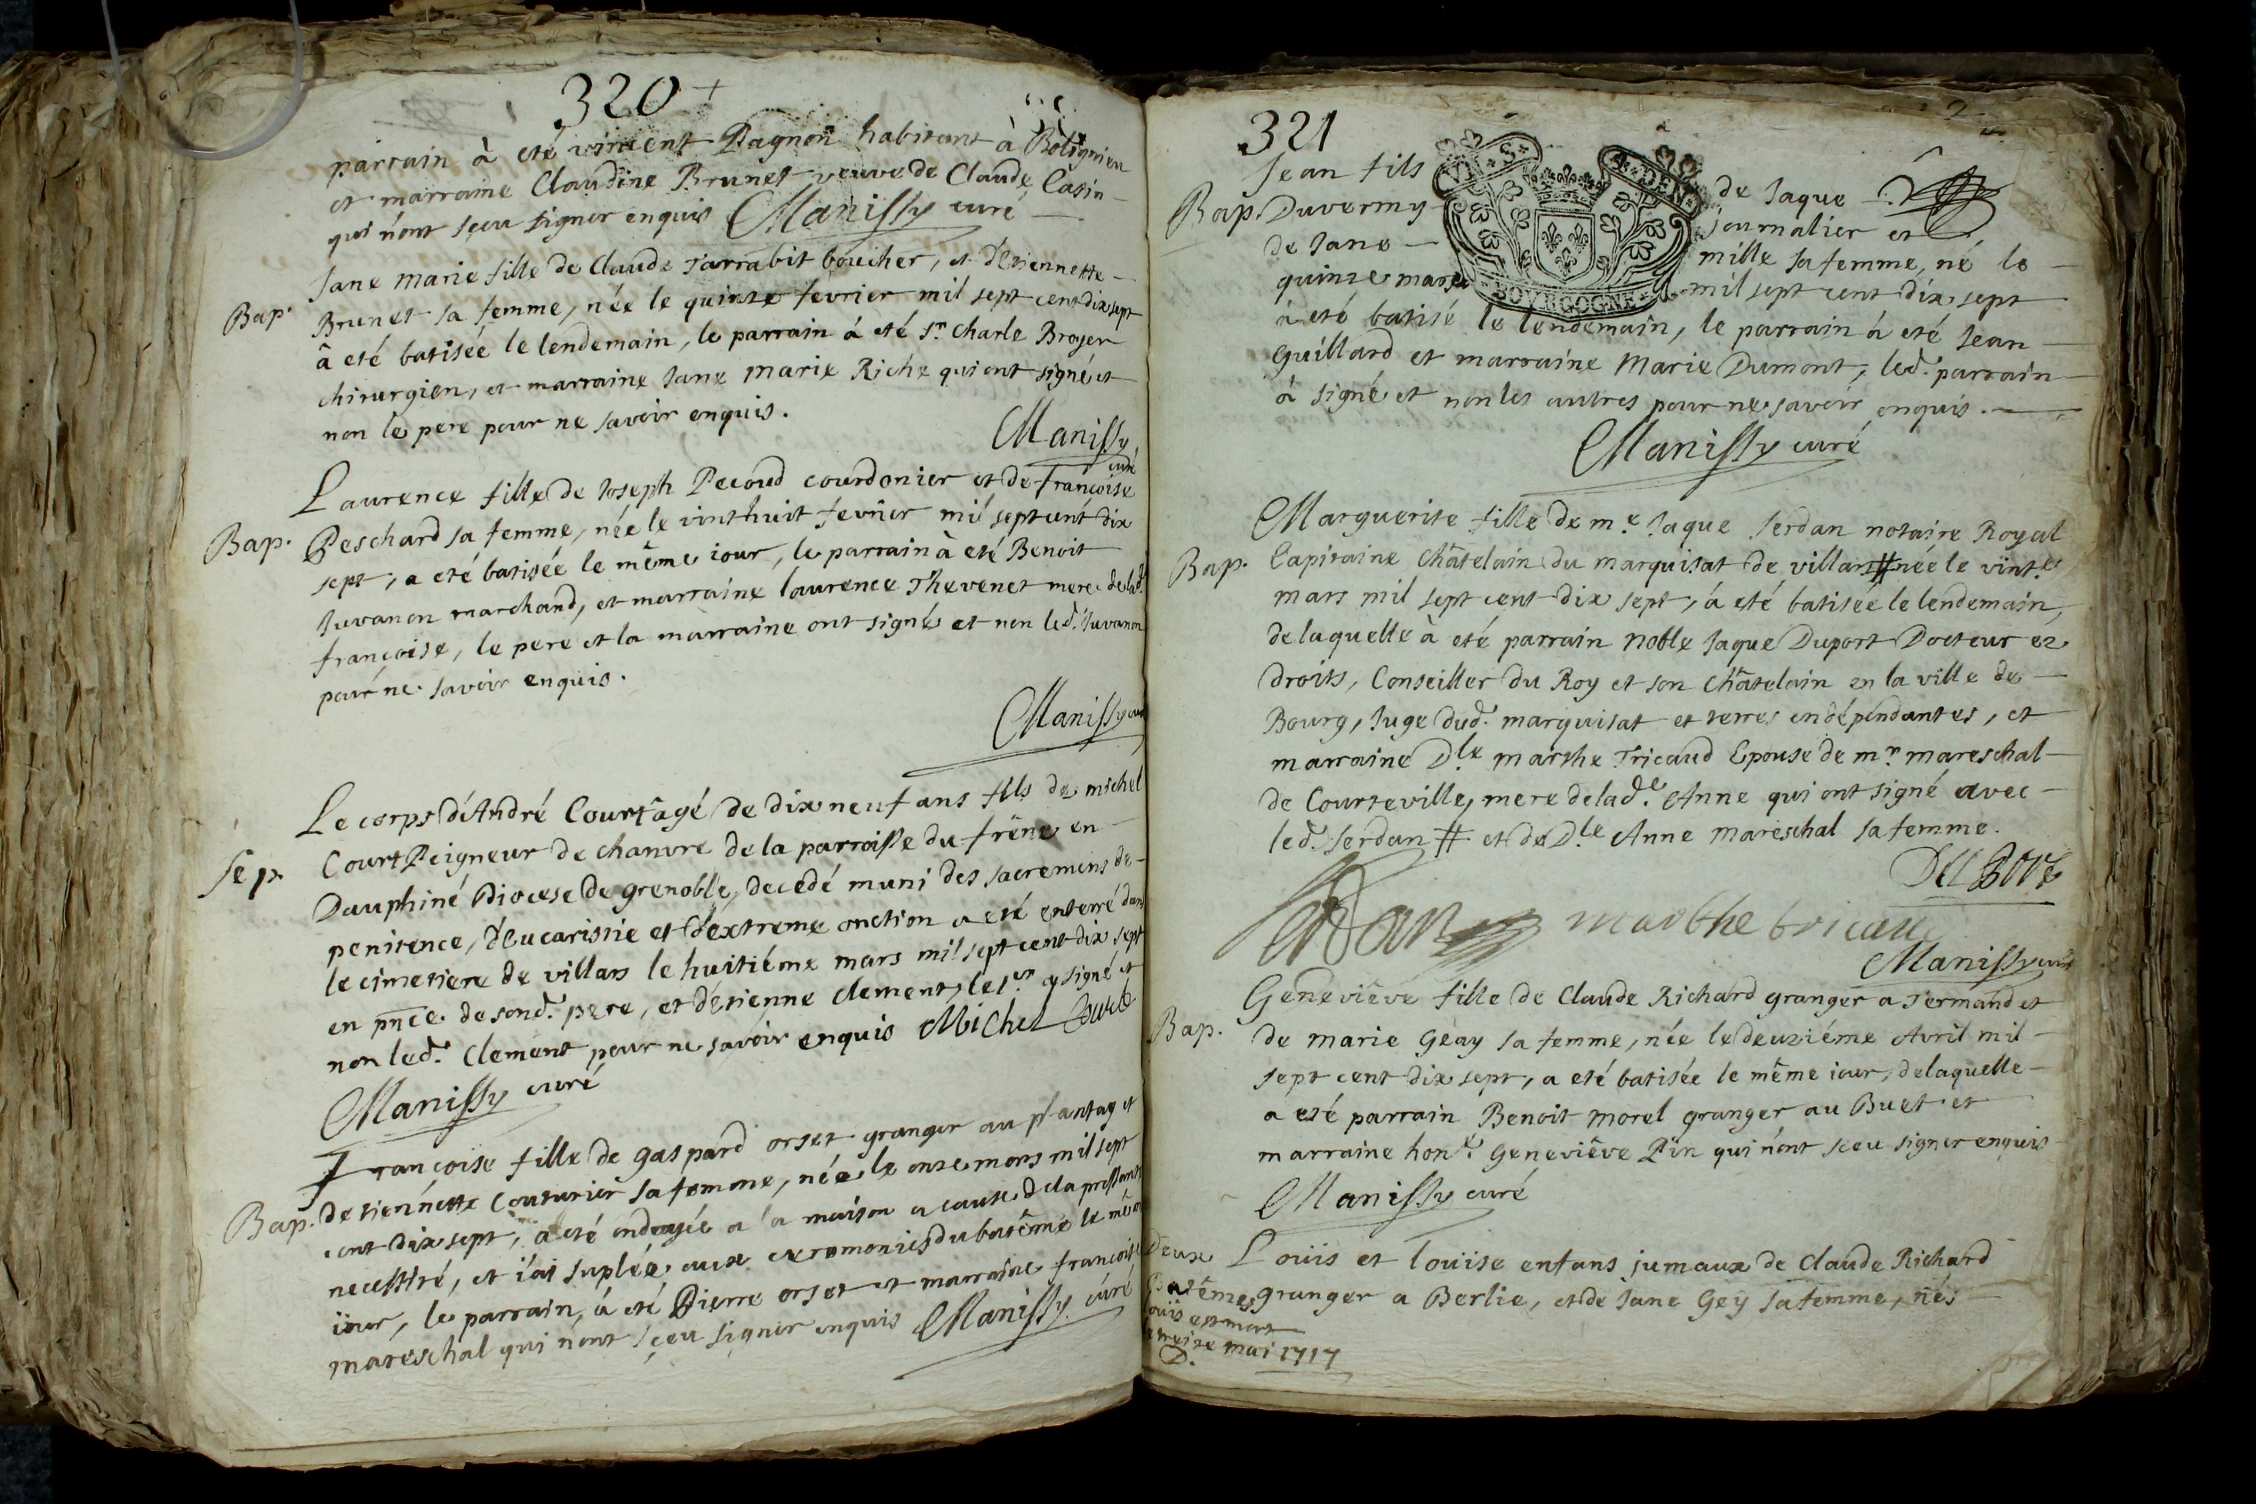 320
parrain à eté vincent Pagnon habitant à Bolignieu
et marraine Claudine Brunet veuve de Claude Casin
qui n'ont sçeu signer enquis Manissy curé
Jane marie fille de Claude Tarrabit boucher, et d'Etiennette
Bap. Brunet sa femme, née le quinze fevrier mil sept cent dix sept
à eté batisée le lendemain, le parrain à eté Sr. Charle Broyer
chirurgien, et marraine Jane marie Riche qui ont signé et
non le pere pour ne savoir enquis.
Manissy
curé
Laurence fille de Joseph Pecoud courdonier et de françoise
Bap. Peschard sa femme, née le vint huit fevrier mil sept cent dix
sept, a eté batisée le même iour, le parrain à eté Benoit
Juvanon marchand, et marraine laurence Thevenet mere de lad.
françoise, le pere et la marraine ont signés et non led. Juvanon
pour ne savoir enquis.
Manissy curé
Le corps d'André Court âgé de dix neuf ans fils de michel
Sep. Court Peigneur de chanvre de la parroisse du frêne en
Dauphiné Diocese de grenoble, decedé muni des sacremens de
penitence, d'eucaristie et d'extreme onction a eté enterré dans
le cimetiere de villars le huitiéme mars mil sept cent dix sept
en pnce. de sond. pere, et d'étienne clement, le 1er. a signé et
non led. Clement pour ne savoir enquis Michel Court
Manissy curé
Françoise fille de gaspard orset granger au plantay et
Bap. detiennette Couturier sa femme, née le onze mars mil sept
cent dix sept, a eté ondoyée a la maison a cause de la pressante
necessité, et i'ai suplée aux ceremonies du batême le même
iour, le parrain, à eté Pierre orset et marraine françoise
mareschal qui n'ont sçeu signer enquis Manissy. curé
321
Jean fils de Jaque
Bap. Duvermy journalier et
de Jane mille sa femme, né le
quinze mars mil sept cent dix sept
BOVRGOGNE
à eté batisé le lendemain, le parrain à eté Jean
Guillard et marraine Marie Dumont, led. parrain
à signé et non les autres pour ne savoir enquis.
Manissy curé
Marguerite fille de me. Jaque Serdan notaire Royal
Bap. Capitaine châtelain du marquisat de villars # née le vint.
mars mil sept cent dix sept, à eté batisée le lendemain,
de laquelle à eté parrain noble Jaque Duport Docteur ez
droits, Conseiller du Roy et son Châtelain en la ville de
Bourg, Juge dud. marquisat et terres en dépendantes, et
marraine Dle. marthe Tricaud Epouse de mr. mareschal
de Courteville, mere de lad. Anne qui ont signé avec
led. Serdan # et de Dle. Anne mareschal sa femme.
Serdan marthe tricaud
Manissy curé
Geneviêve fille de Claude Richard granger a Termand et
Bap. de marie Geay sa femme, née le deuziéme Avril mil
sept cent dix sept, a eté batisée le même iour, de laquelle
a eté parrain Benoit morel granger au Buet et
marraine hon. Geneviêve Pin qui n'ont sceu signer enquis
Manissy curé
Deux Louïs et louïse enfans jumaux de Claude Richard
Batêmes granger a Berlie, et de Jane Geÿ sa femme, nés
louis est mort
le treize mai 1717